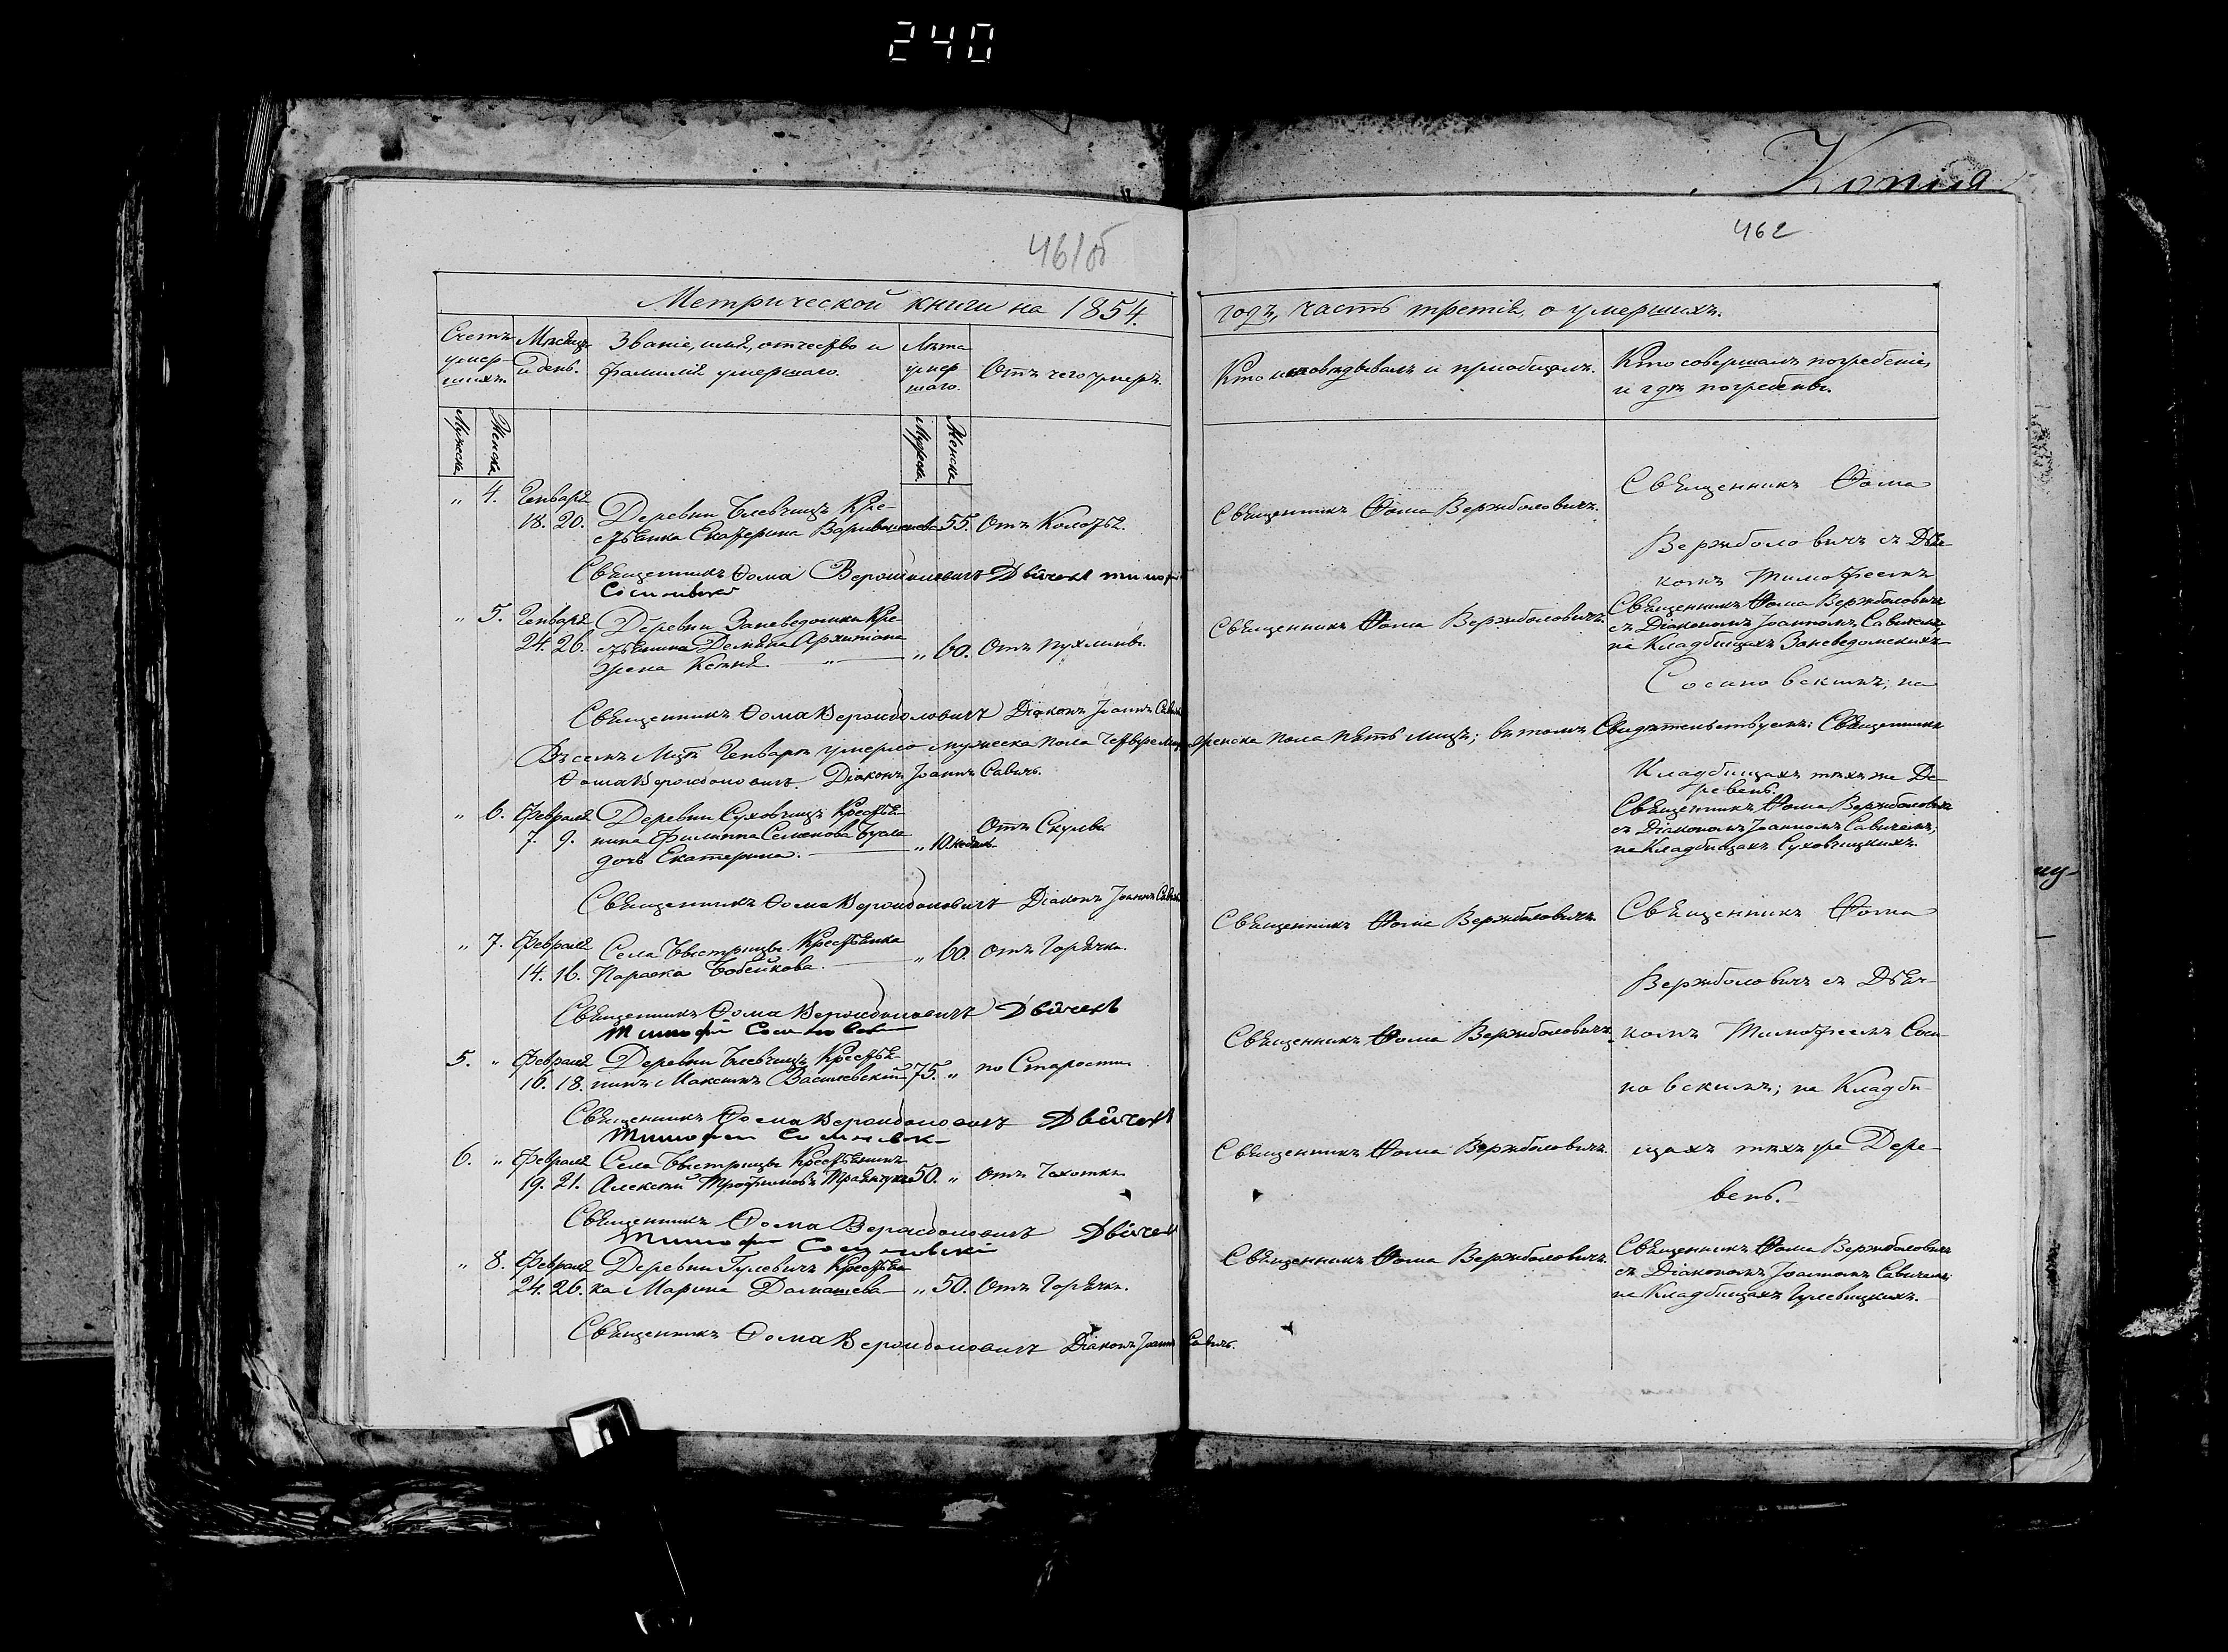 240
Копия
461об
462
Метрической книги на 1854.
годъ, часть третія, о умершихъ.
Счетъ умер-шихъ.
Мѣсяцъ и день.
Званіе, имя, отчество и
фамилія умершаго.
Лѣта умер шаго.
Отъ чего умеръ.
Кто исповѣдывалъ и пріобщалъ.
Кто совершалъ погребеніе,
и гдѣ погребены.
Мужеска
Женска
Мужеска
Женска
„ 4. Генваря
18. 20. Деревни Блевчицъ Кре-
стьянка Екатерина 55. Отъ Колотья.
Священникъ Ѳома Вержболовичъ.
Священникъ Ѳома
Вержболовичъ съ Дья-
комъ Тимофеемъ
Священникъ Ѳома Вержболовичъ Дьячекъ
„ 5. Генваря Деревни Заневедомки Кре-
24. 26. стьянина Демьяна Архипіона
жена Ксенія. „ 60. Отъ пухлины.
Священникъ Ѳома Вержболовичъ.
Священникъ Ѳома Вержболовичъ
съ Діакономъ Іоанномъ Савичемъ,
на Кладбищахъ Заневедомскихъ
Сосиновскимъ, на
Священникъ Ѳома Вержболовичъ Діаконъ Іоаннъ Савичъ
Въ семъ Мцѣ Генварѣ умерло мужеска пола Четверо женска пола пять лицъ; въ томъ Свидѣтельствуемъ: Священникъ
Ѳома Вержболовичъ. Діаконъ Іоаннъ Савичъ.
Кладбищахъ тѣхъ же Де-
ревень.
„ 6. Февраля Деревни Суховчицъ Крестья-
7. 9. нина Филиппа Семенова Бусла
дочь Екатерина. „ 10. недель Отъ Скулы
Священникъ Ѳома Вержболовичъ
съ Діакономъ Іоанномъ Савичемъ;
на Кладбищахъ Суховчицкихъ.
Священникъ Ѳома Вержболовичъ Діаконъ Іоаннъ Савичъ
„ 7. Февраля Села Быстрицы Крестьянка
14. 16. Параска Бобейкова. „ 60. Отъ Горячки.
Священникъ Ѳома Вержболовичъ.
Священникъ Ѳома
Вержболовичъ съ Дьяч-
Священникъ Ѳома Вержболовичъ Дьячекъ
Тимофей Сосиновскі
5. „ Февраля Деревни Блевчицъ Крестья-
16. 18. нинъ Максимъ Василевскій 75. „ по Старости
Священникъ Ѳома Вержболовичъ.
комъ Тимофеемъ Соси-
новскимъ; на Кладби-
Священникъ Ѳома Вержболовичъ Дьячекъ
Тимофей
6. „ Февраля Села Быстрицы Крестьянинъ
19. 21. Алексѣй Трофимовъ 50. „ Отъ Чахотки.
Священникъ Ѳома Вержболовичъ.
щахъ тѣхъ же Дере-
вень.
Священникъ Ѳома Вержболовичъ Дьячекъ
Тимофей Сосиновскій
„ 8. Февраля Деревни Гулевичъ Крестьян-
24. 26. ка Марина Домашева „ 50. Отъ Горячки.
Священникъ Ѳома Вержболовичъ.
Священникъ Ѳома Вержболовичъ
съ Діакономъ Іоанномъ Савичемъ;
на Кладбищахъ Гулевицкихъ.
Священникъ Ѳома Вержболовичъ Діаконъ Іоаннъ Савичъ.